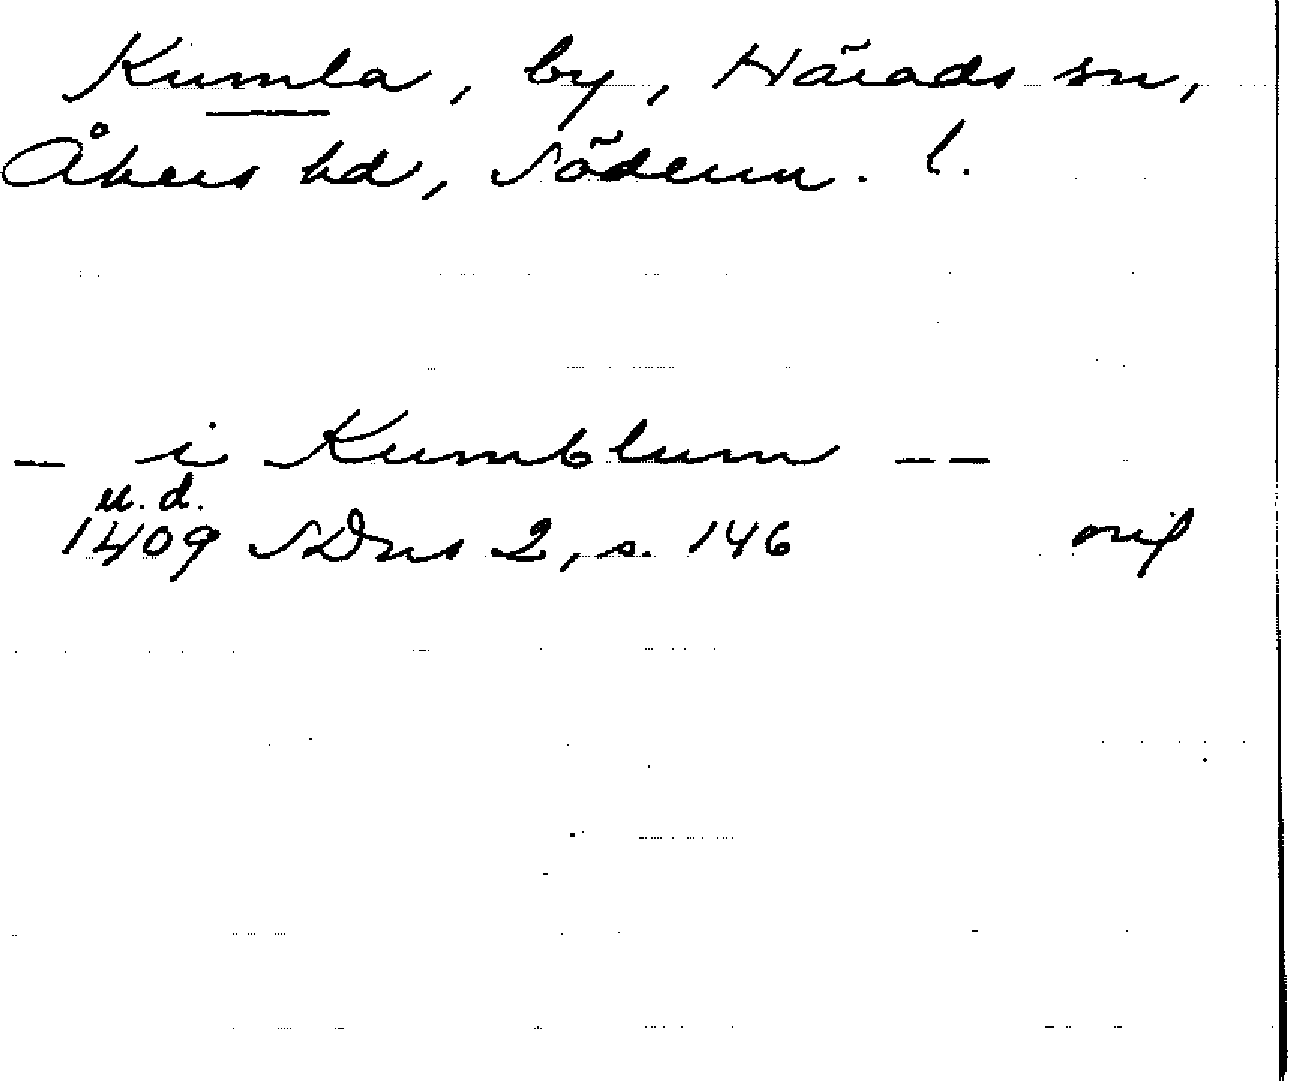 Kumla, by, Härads sn,
Åkers hd, Söderm. l.
— i Kumblum — —
u.d.
1409 SDns 2, s. 146 orig